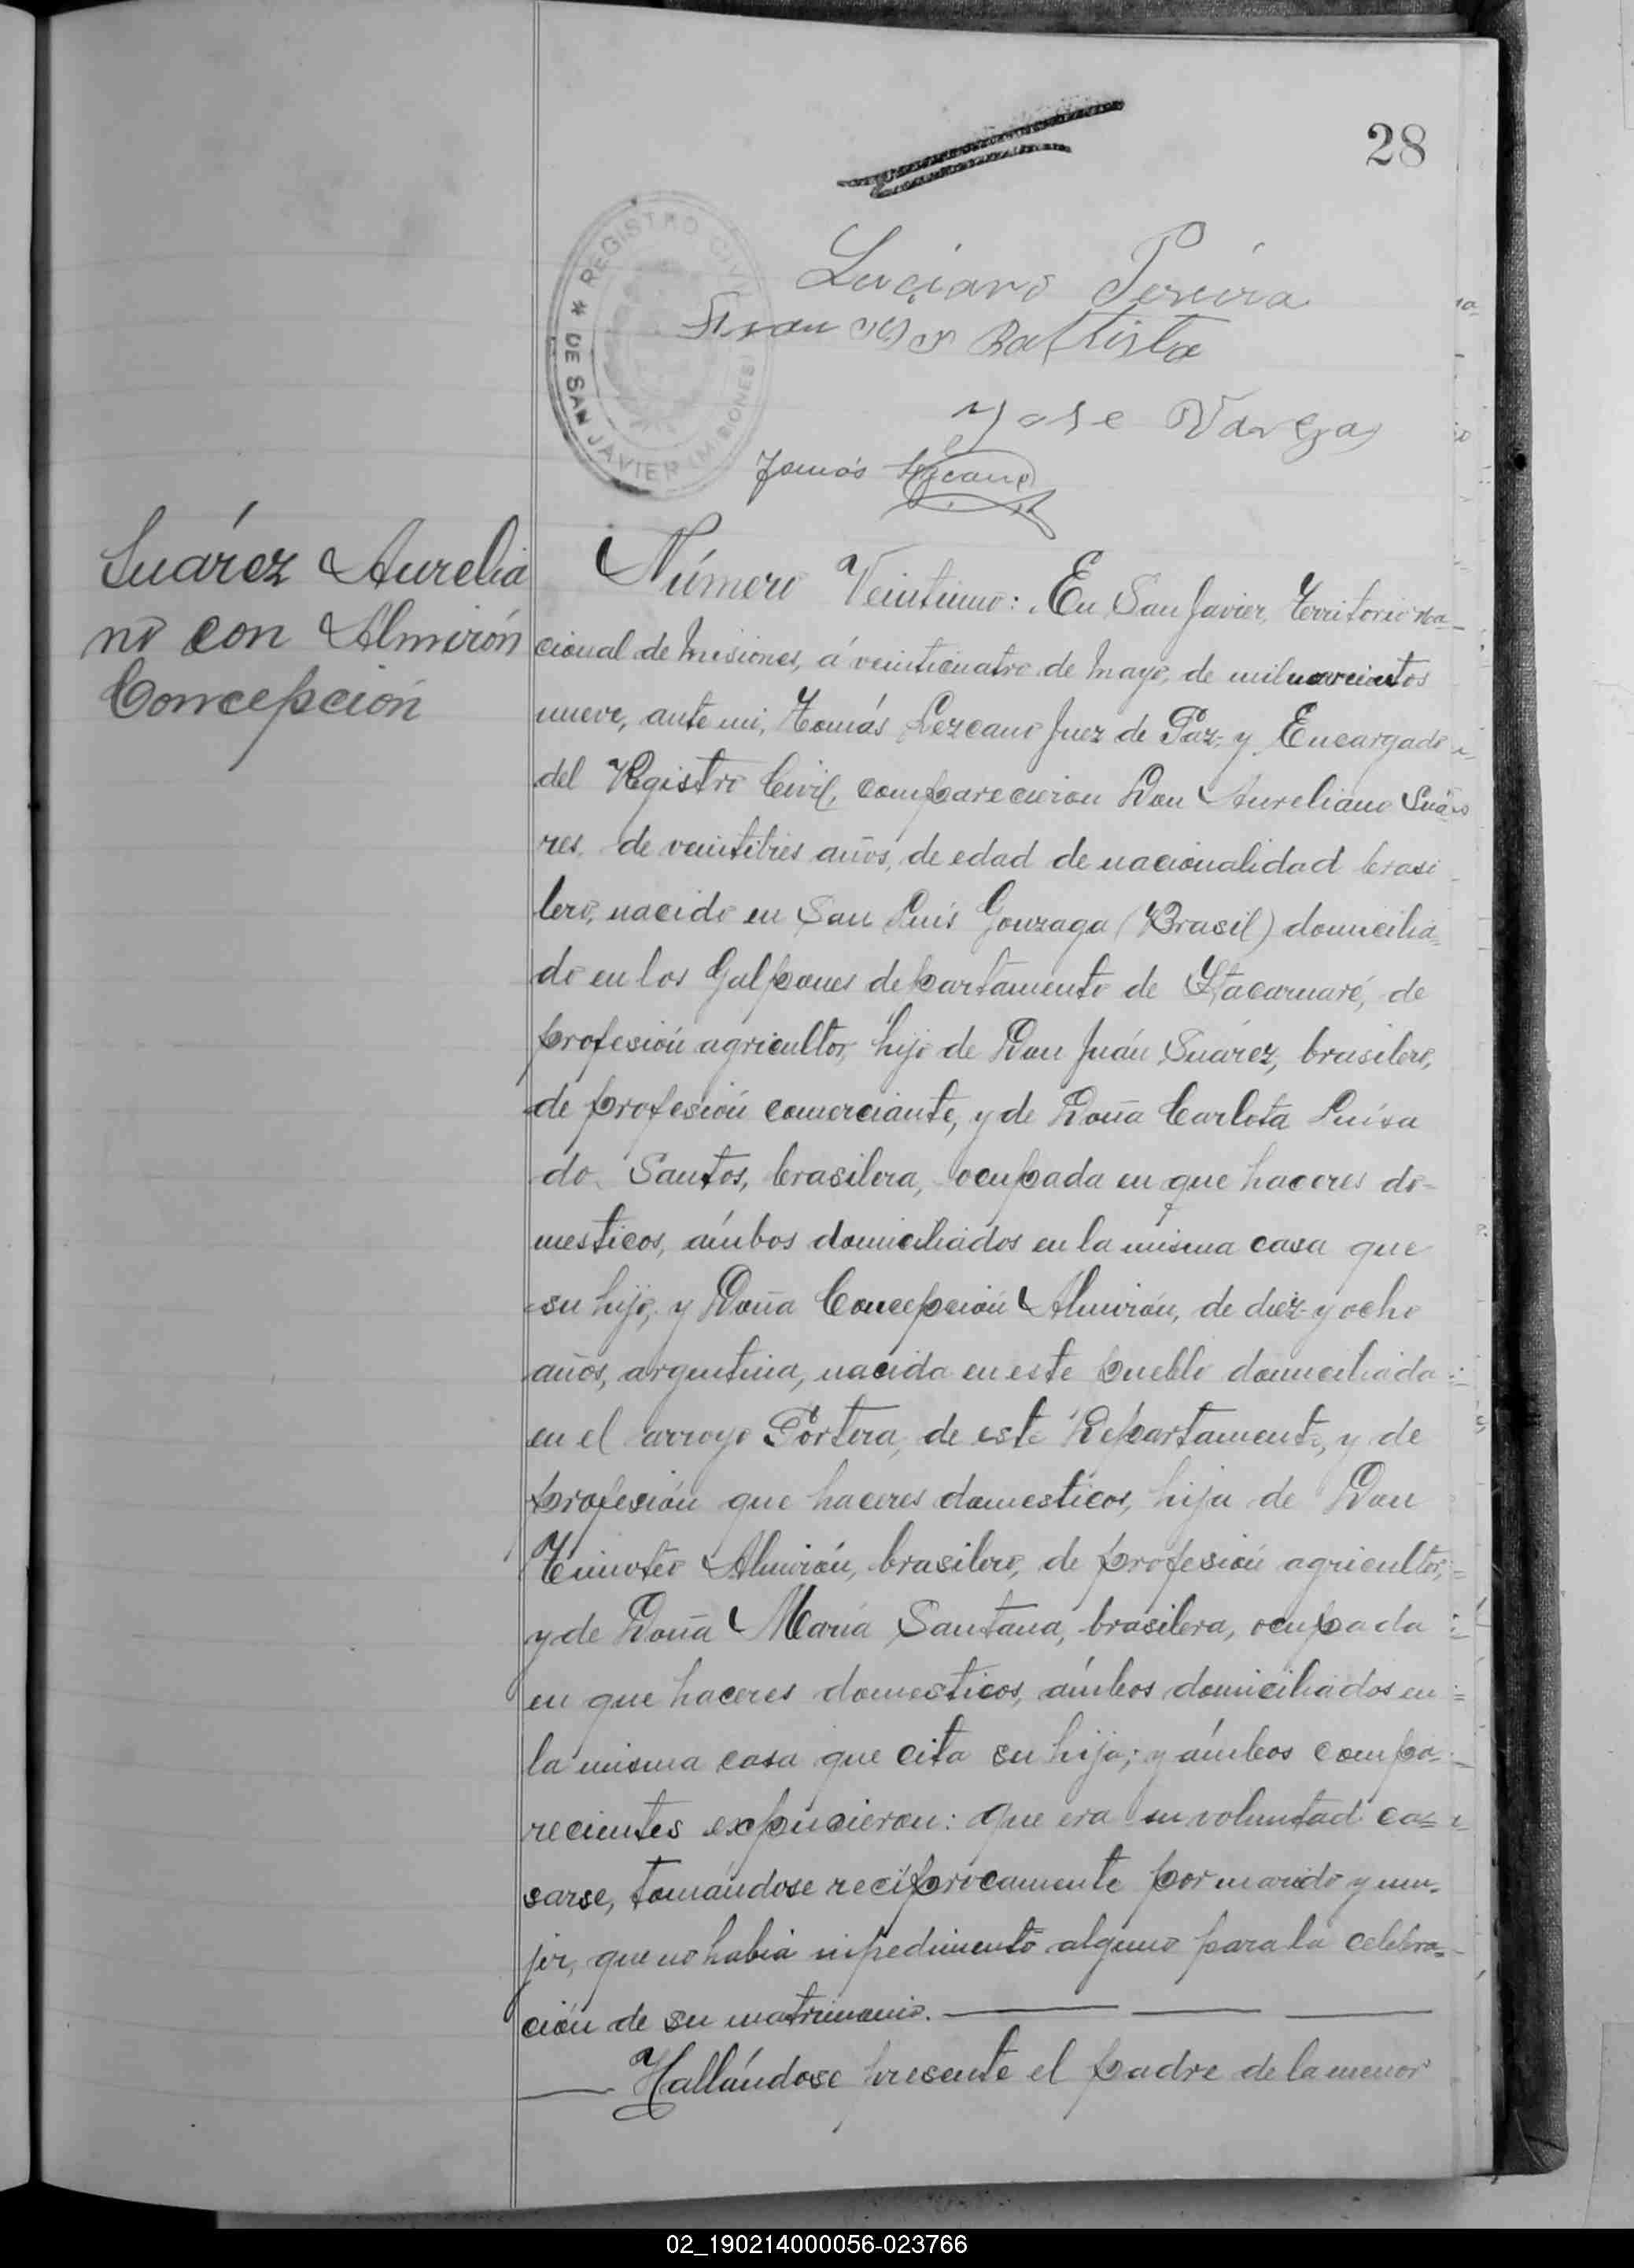 28
REGISTRO CIVIL
* DE SAN JAVIER (MISIONES)
Luciano Pereira
Battista
Jose Vargas
Tomás Lezcano
Suárez Aurelia
no con Almirón
Concepción
Número Veintiuno: En San Javier, Territorio Na-
cional de Misiones, á veinticuatro de Mayo, de mil novecientos
nueve, ante mi, Tomás Lezcano Juez de Paz y Encargado
del Registro Civil, comparecieron Don Aureliano Suá-
res, de veintitres años, de edad de nacionalidad brasi
lero, nacido en San Luis Gonzaga (Brasil) domicilia-
do en los Galpones departamento de Itacaruaré, de
profesión agricultor, hijo de Don Juán Suárez, brasilero,
de profesión comerciante, y de Doña Carlota Luisa
do Santos, brasilera, ocupada en que haceres do-
mesticos, ámbos domiciliados en la misma casa que
su hijo, y Doña Concepción Almirón, de diez y ocho
años, argentina, nacida en este pueblo domiciliada
en el arroyo Portera, de este Departamento, y de
profesión que haceres domesticos, hija de Don
Timoteo Almirón, brasilero, de profesión agricultor,
y de Doña María Santana, brasilera, ocupada
en que haceres domesticos, ámbos domiciliados en
la misma casa que cita su hija; y ámbos compa-
recientes expucieron: Que era su voluntad ca-
sarse, tomándose recíprocamente por marido y mu-
jer, que no habia inpedimento alguno para la celebra-
ción de su matrimonio.
Hallándose presente el padre de la menor
02_190214000056-023766